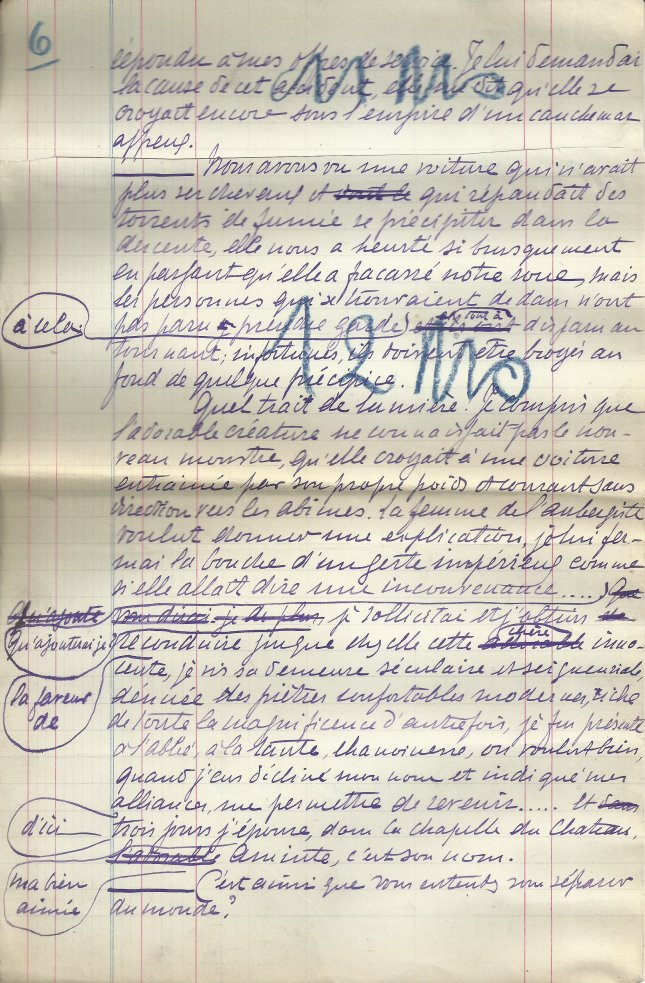 6
répondu à mes offres de service. Je lui demandai
la cause de cet accident, elle me dit qu'elle se
croyait encore sous l'empire d'un cauchemar
affreux.
——— Nous avons vu une voiture qui n'avait
plus ses chevaux et qui répandait des
torrents de fumée se précipiter dans la
descente, elle nous a heurté si brusquement
en passant qu'elle a fracassé notre roue, mais
les personnes qui se trouvaient dedans n'ont
à cela
pas paru prendre garde, disparu au
tournant, infortunés, ils doivent être broyés au
fond de quelque précipice.
12
Quel trait de lumière. Je compris que
l'adorable créature ne connaissait pas le nou-
veau monstre, qu'elle croyait à une voiture
entrainée par son propre poids et courant sans
direction vers les abîmes. La femme de l'aubergiste
voulut donner une explication, je lui fer-
mai la bouche d'un geste impérieux comme
si elle allait dire une inconvenance.....
qu'ajoute
vous dirai-je de plus, je sollicitai et j'obtins
qu'ajouterai je
reconduire jusque chez elle cette chère inno-
cente, je vis sa demeure séculaire et seigneuriale,
la faveur
de
dénuée des piètres confortables modernes, riche
de toute la magnificence d'autrefois, je fus présenté
à l'abbé, à la tante, chanoinesse, on voulut bien,
quand j'eus décliné mon nom et indiqué mes
alliances, me permettre de revenir..... Et
d'ici
trois jours j'épouse, dans la chapelle du Chateau,
l'adorable Aminte, c'est son nom.
ma bien
aimée
——— C'est ainsi que vous entendez vous séparer
du monde?